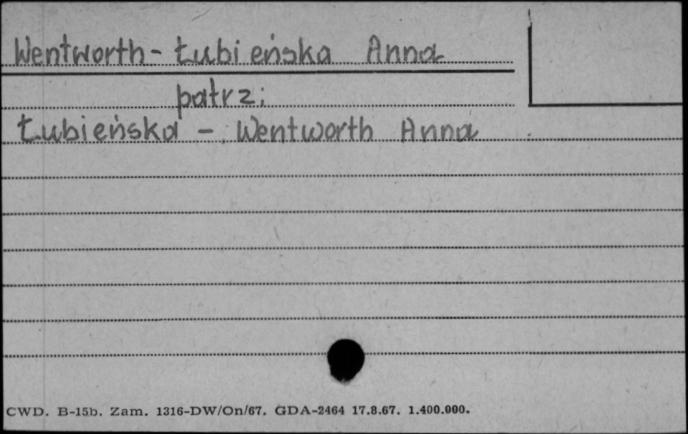 Wentworth - Łubieńska Anna
patrz:
Łubieńska - Wentworth Anna
CWD. B-15b. Zam. 1316-DW/On/67. GDA-2464 17.8.67. 1.400.000.